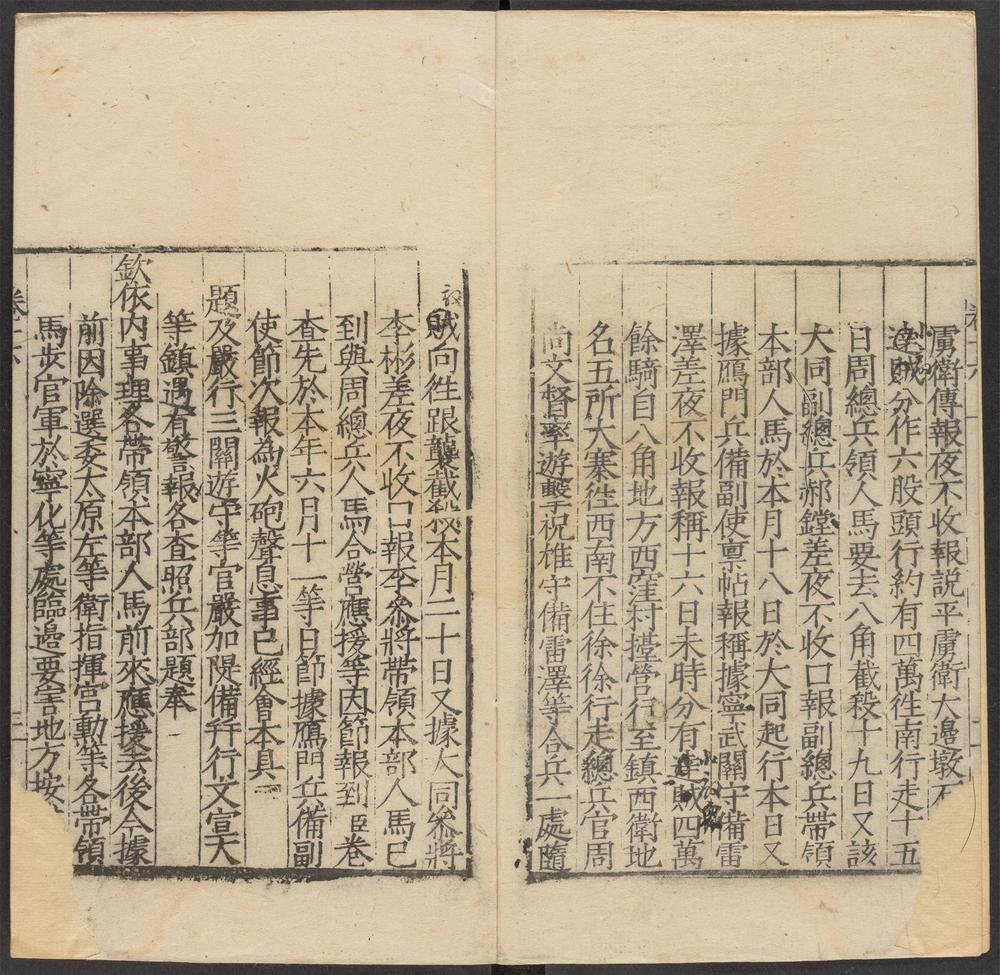 虜衛傳報夜不收報説平虜衛大邊墩
達賊分作六股頭行約有四萬徃南行走十五
日周總兵領人馬要去八角截殺十九日又該
大同副總兵郝鏜差夜不收口報副總兵帶領
本部人馬於本月十八日於大同起行本日又
據鴈門兵備副使禀帖報稱據寧武關守備雷
澤差夜不收報稱十六日未時分有達賊四萬
餘騎自八角地方西窪村擡營行至鎮西衛地
名五所大寨徃西南不住徐徐行走總兵官周
尚文督率遊擊祝雄守備雷澤等合兵一處隨
賊向徃跟襲截殺本月二十日又據大同叅將
李彬差夜不收口報李叅將帶領本部人馬已
到與周總兵人馬合營應援等因節報到臣卷
查先於本年六月十一等日節據鴈門兵備副
使節次報為火砲聲息事已經會本具
題及嚴行三關遊守等官嚴加隄備幷行文宣大
等鎮遇有警報各查照兵部題奉
欽依内事理各帶領本部人馬前來應援去後今據
前因除選委太原左等衛指揮宫勳等各帶領
馬步官軍於寧化等處臨邊要害地方按
卷十六
三